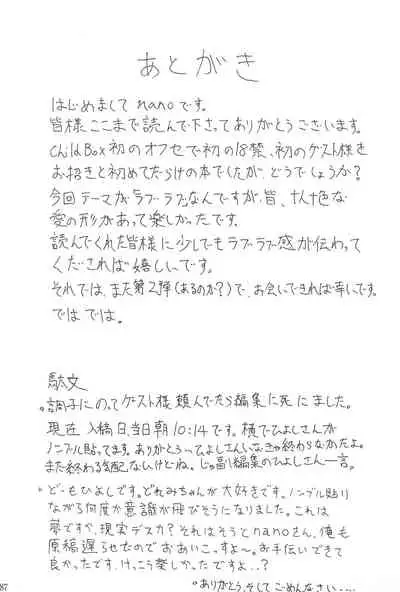 あとがき
はじめまして nanoです。
皆様ここまで読んで下さってありがとうございます。
Child Box 初のオフセで初の18禁、初のゲスト様を
お招きと初めてだらけの本でしたが、どうでしょうか?
今回テーマがラブ・ラブなんですが、皆、十人十色な
愛の形があって楽しかったです。
読んでくれた皆様に少しでもラブ・ラブ感が伝わって
くだされば嬉しいです。
それでは、また第2弾(あるのか?)で、お会いできれば幸いです。
ではでは。
駄文
。調子にのってゲスト様頼んでたら編集に死にました。
現在 入稿日当日朝10:14です。横でひよしさんが
ノンブル貼ってます。ありがとうっひよしさんいなきゃ終わらなかたよ。
まだ終わる気配ないけどね。じゃ副編集のひよしさん一言。
。どーもひよしです。どれみちゃんが大好きです。ノンブル貼り
ながら何度か意識が飛びそうになりました。これは
夢ですか、現実デスカ? それはそうとnanoさん、俺も
原稿遅らせたのでおあいこっすよ〜。お手伝いできて
良かったです、けっこう楽しかったですよ…?
。ありがとう、そしてごめんなさい……
87